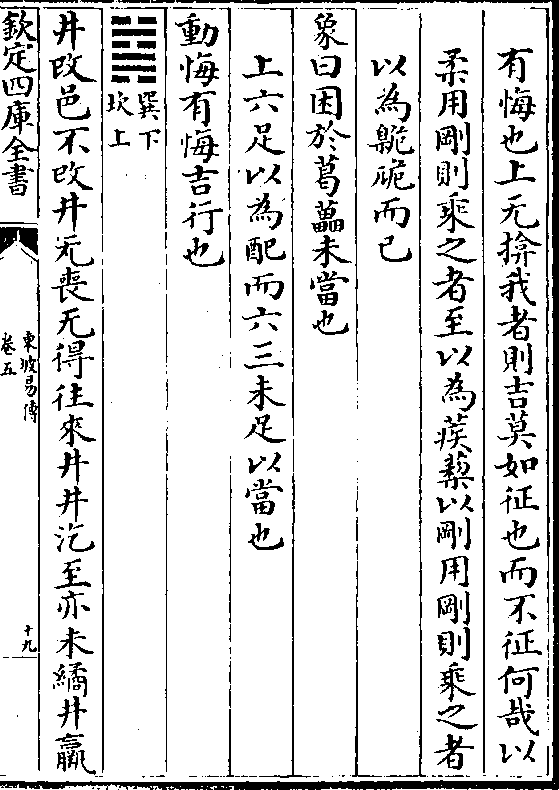 有悔也上无揜我者則吉莫如征也而不征何哉以
柔用剛則乘之者至以為蒺蔾以剛用剛則乘之者
以為臲卼而已
象曰困於葛藟未當也
上六足以為配而六三未足以當也
動悔有悔吉行也
䷯巽下坎上
井改邑不改井无喪无得往來井井汔至亦未繘井羸
欽定四庫全書
東坡易傳
卷五
十九